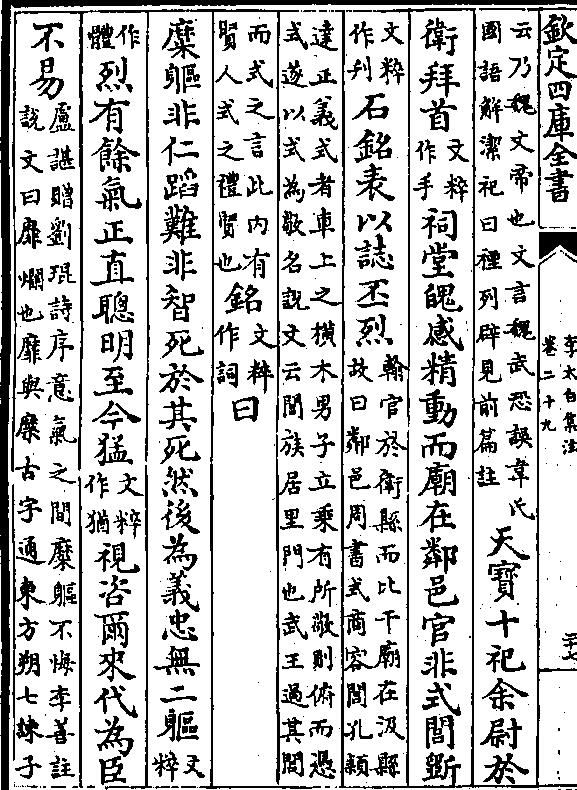 欽定四庫全書
李太白集注
卷二十九
云乃魏文帝也文言魏武恐誤韋氏
國語解潔祀曰禋列辟見前篇註
天寶十祀余尉於
衛拜首文粹作手祠堂魄感精動而廟在鄰邑官非式閭斵
文粹作刋石銘表以誌丕烈
翰官於衛縣而比干廟在汲縣
故曰鄰邑周書式商容閭孔頴
達正義式者車上之橫木男子立乗有所敬則俯而憑
式遂以式為敬名說文云閭族居里門也武王過其閭
而式之言此内有
賢人式之禮賢也
銘文粹作詞曰
糜軀非仁蹈難非智死於其死然後為義忠無二軀文粹
作體烈有餘氣正直聰明至今猛文粹作猶視咨爾來代為臣
不易
盧諶贈劉琨詩序意氣之間糜軀不悔李善註
說文曰靡爛也靡與糜古字通東方朔七諫子